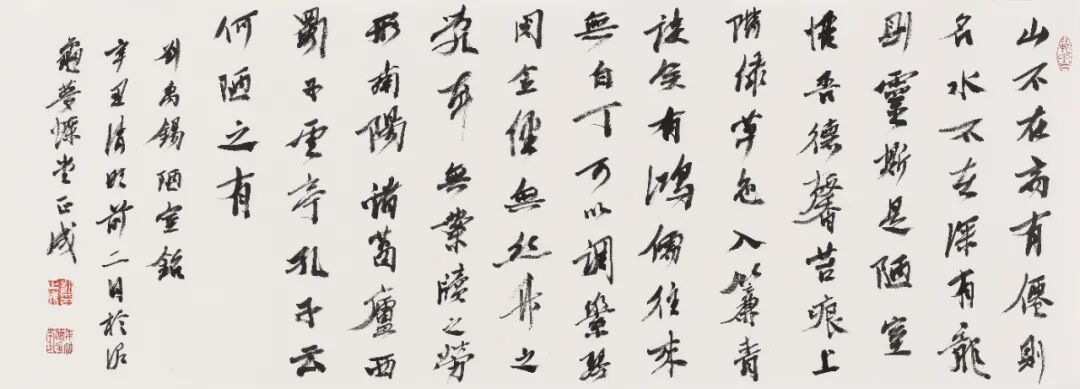 山不在高有僊則
名水不在深有龍
則靈斯是陋室
惟吾德馨苔痕上
階緑草色入簾青
談笑有鴻儒往來
無白丁可以調素琴
閱金經無絲竹之
亂耳無案牘之勞
形南陽諸葛廬西
蜀子雲亭孔子云
何陋之有
劉禹錫陋室銘
辛丑清明前二日於泥
龜夢蝶堂正成